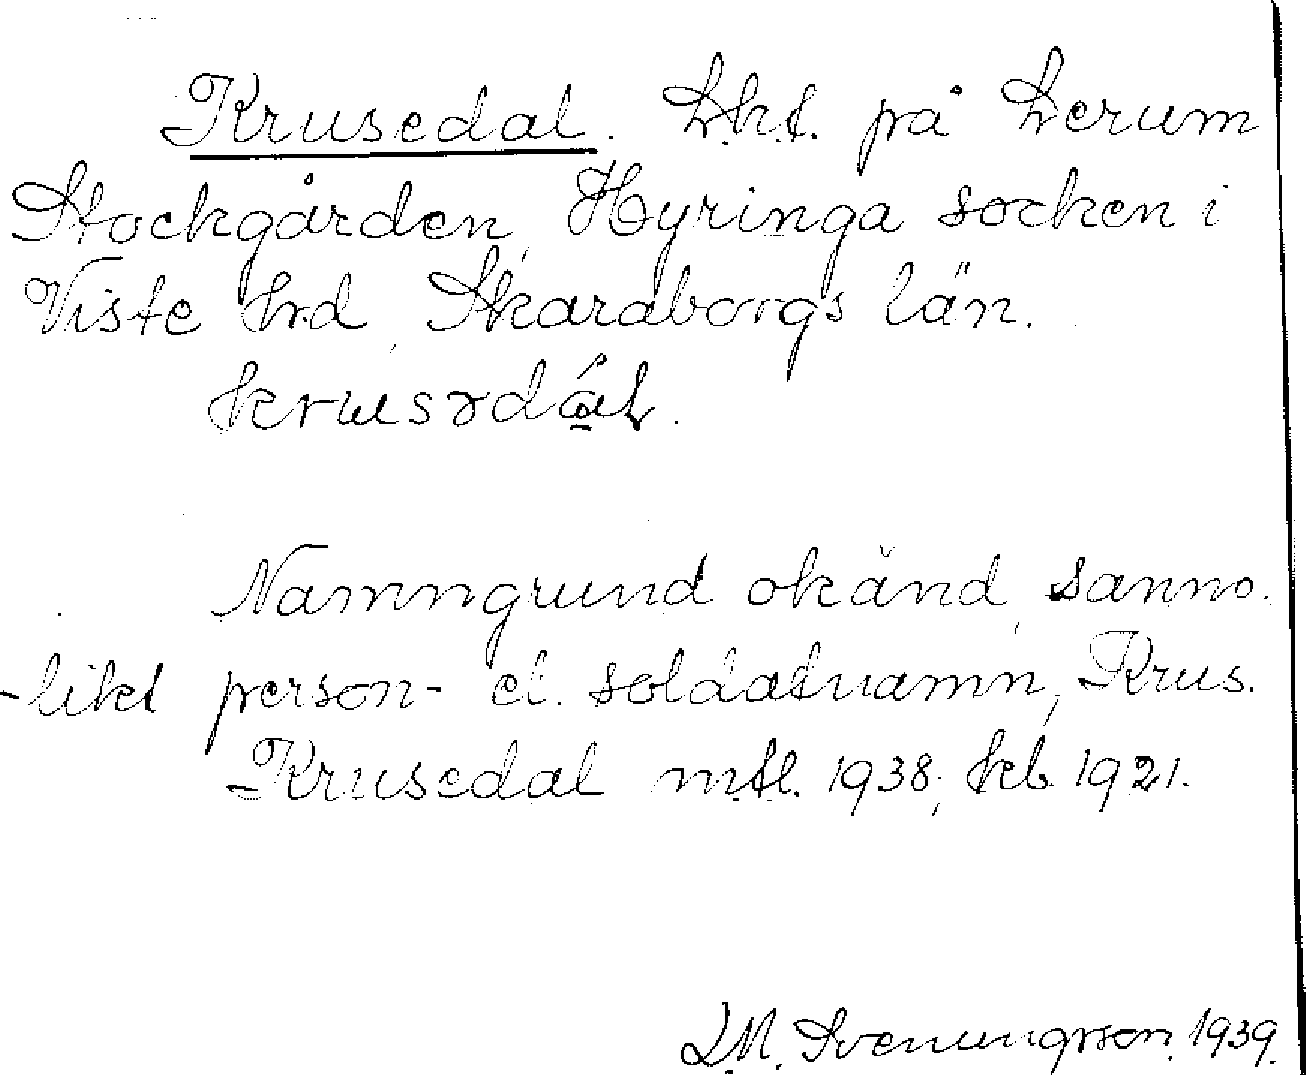 Krusedal. Lht. på Lerum
Stockgården, Hyringa socken i
Viste hd, Skaraborgs län.
krusǝdál.
Namngrund okänd, sanno-
-likt person- el. soldatnamn, Krus.
Krusedal mtl. 1938; kb 1921.
D.M. Svenungsson. 1939.